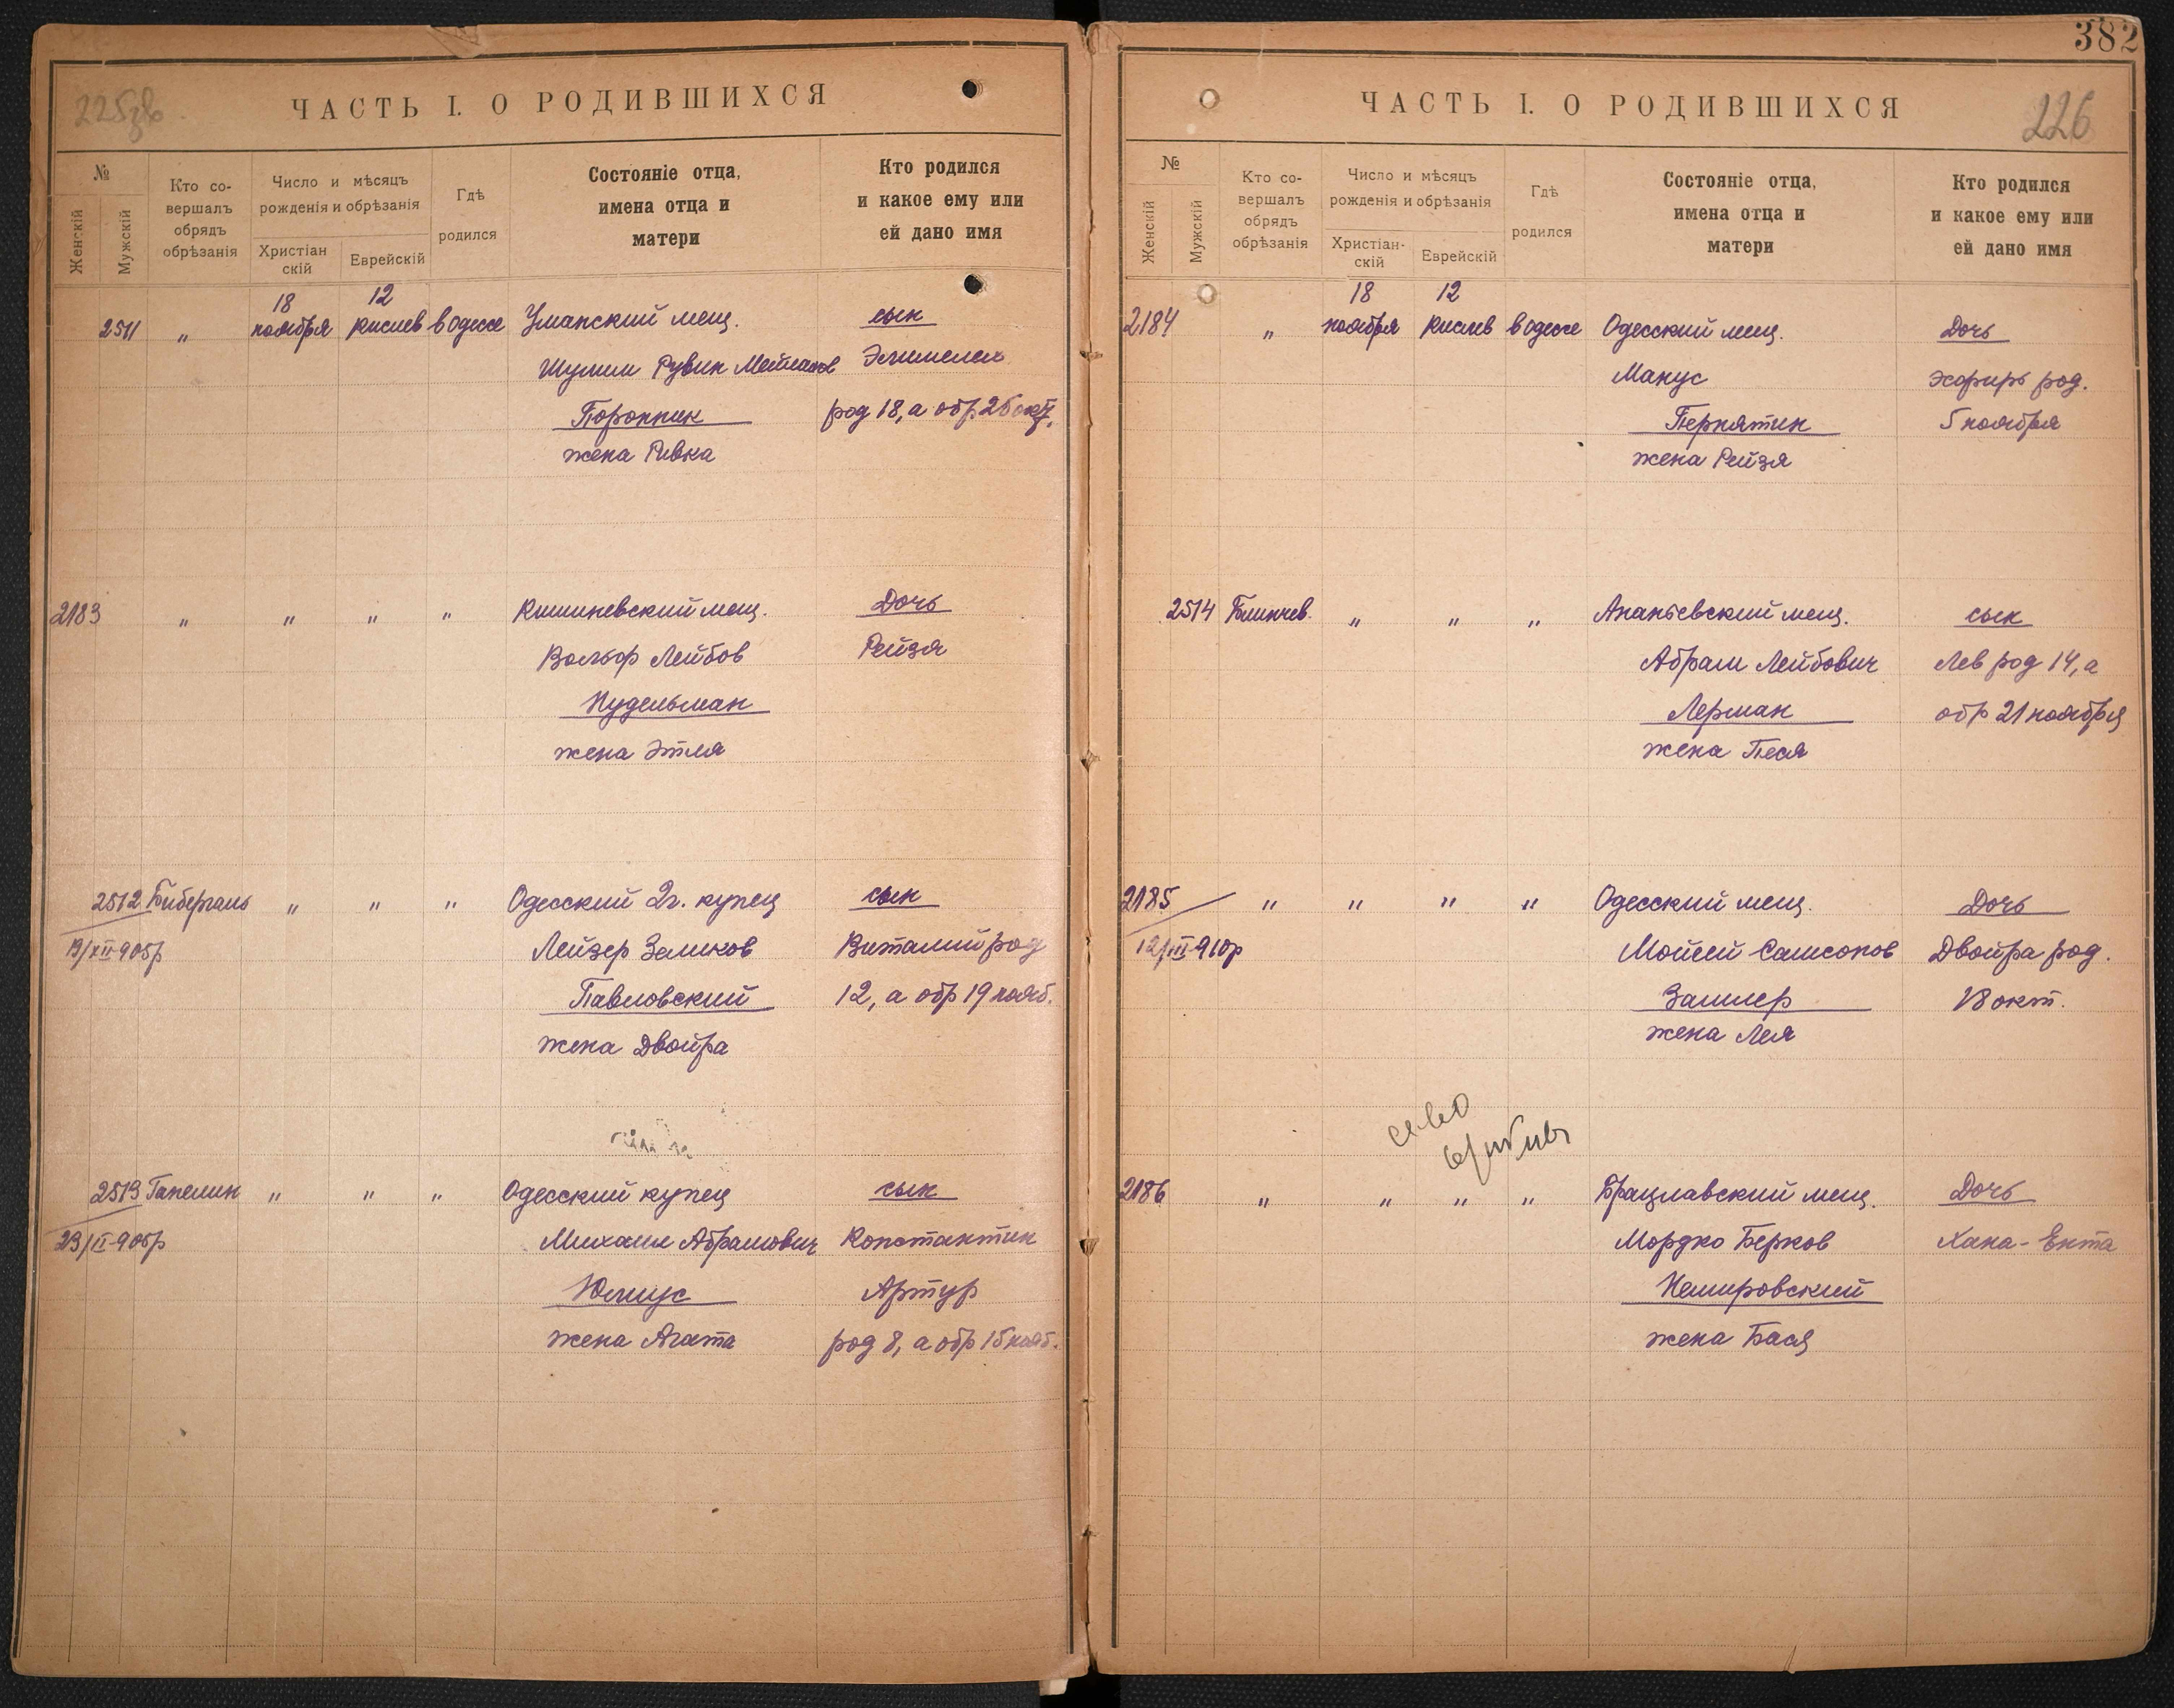 382
ЧАСТЬ I. О РОДИВШИХСЯ
№
Женскій
Мужскій
Кто со-
вершалъ
обрядъ
обрѣзанія
Число и мѣсяцъ
рожденія и обрѣзанія
Христіан
скій
Еврейскій
Гдѣ
родился
Состояніе отца,
имена отца и
матери
Кто родился
и какое ему или
ей дано имя
2511 " 18 ноября 12 Кислев в Одессе Уманский мещ. сын
Рувин
Эльимелех
род 18, а обр 25
жена Ривка
2183 " " " " Кишиневский мещ. Дочь
Вольф Лейбов Рейзя
Нудельман
жена Этля
2512 Бибергаль " " " Одесский 2г. купец сын
Лейзер Зеликов Виталий род
Павловский 12, а обр 19 нояб.
жена Двойра
2513 Гапелин " " " Одесский купец сын
Михаил Абрамович Константин
Юлиус Артур
жена Агата род 8, а обр 15 нояб.
ЧАСТЬ I. О РОДИВШИХСЯ
226
№
Женскій
Мужскій
Кто со-
вершалъ
обрядъ
обрѣзанія
Число и мѣсяцъ
рожденія и обрѣзанія
Христіан-
скій
Еврейскій
Гдѣ
родился
Состояніе отца,
имена отца и
матери
Кто родился
и какое ему или
ей дано имя
2184 " 18 ноября 12 Кислев в Одессе Одесский мещ. Дочь
Манус Эсфирь род.
Пернятин 5 ноября
жена Рейзя
2514 " " " Ананьевский мещ. сын
Абрам Лейбович Лев род 14, а
Лерман обр 21 ноября
жена Песя
2185 " " " " Одесский мещ. Дочь
12/III-910р Мойсей Самсонов Двойра род.
18 окт.
жена Лея
2186 " " " " Брацлавский мещ. Дочь
Мордко Берков Хана-Ента
Немировский
жена Бася